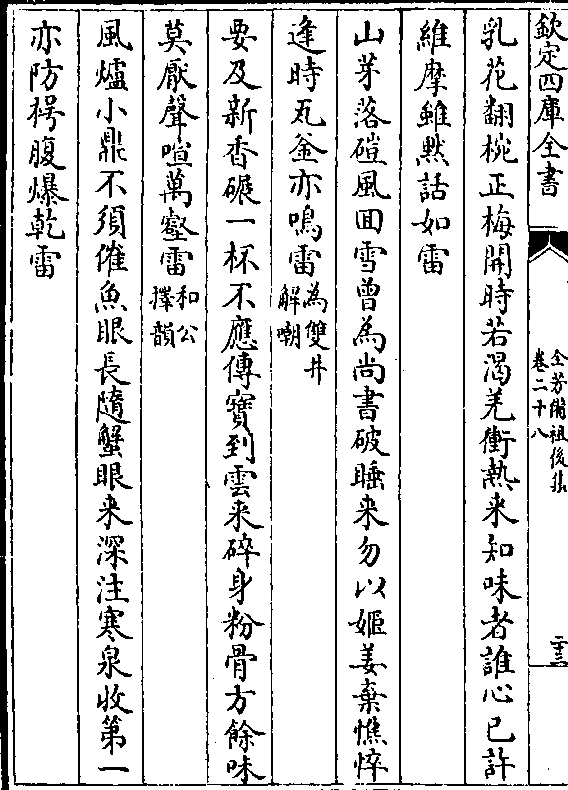 欽定四庫全書
全芳備祖後集
卷二十八
二十三
乳花翻椀正梅開時若渴羌衝熱来知味者誰心已許
維摩雖黙話如雷
山芽落磑風囬雪曽為尚書破睡来勿以姬姜棄憔悴
逢時瓦釜亦鳴雷為雙井解嘲
要及新香碾一杯不應傳寳到雲来碎身粉骨方餘味
莫厭聲喧萬壑雷和公擇韻
風爐小鼎不須催魚眼長隨蟹眼来深注寒泉收第一
亦防枵腹爆乾雷